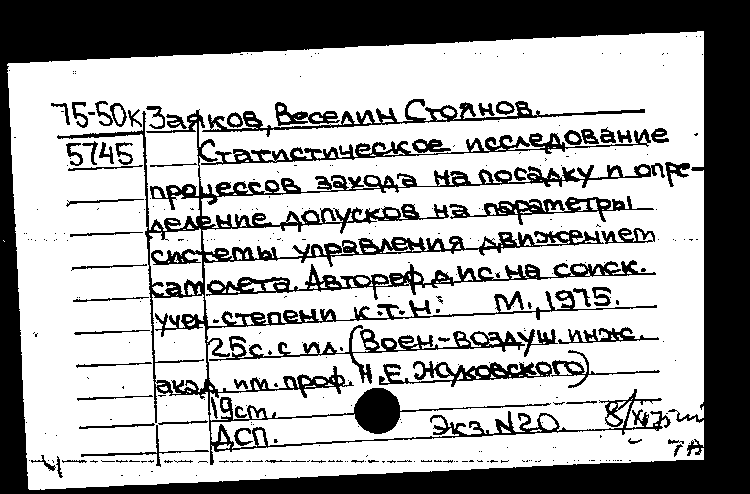 75-50к Заяков, Веселин Стоянов.
5745 Статистическое исследование
процессов захода на посадку и опре-
деление допусков на параметры
системы управления движением
самолета. Автореф. дис. на соиск.
учен. степени к.т.н. М., 1975.
25с. с ил. (Воен.-воздуш. инж.
акад. им. проф. Н.Е. Жуковского).
19см.
ДСП. Экз. N20. 8/XII 75